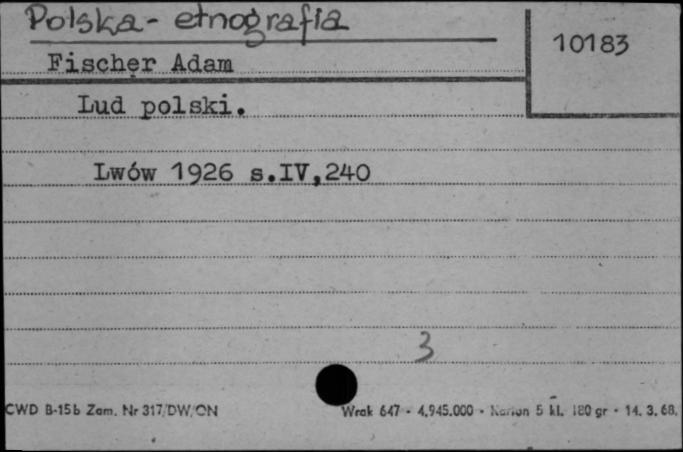 Polska - etnografia
10183
Fischer Adam
Lud polski.
Lwów 1926 s.IV,240
3
CWD B-15b Zam. Nr 317/DW/ON Wrak 647 - 4.945.000 - Karton 5 kl. 180 gr - 14. 3. 68.